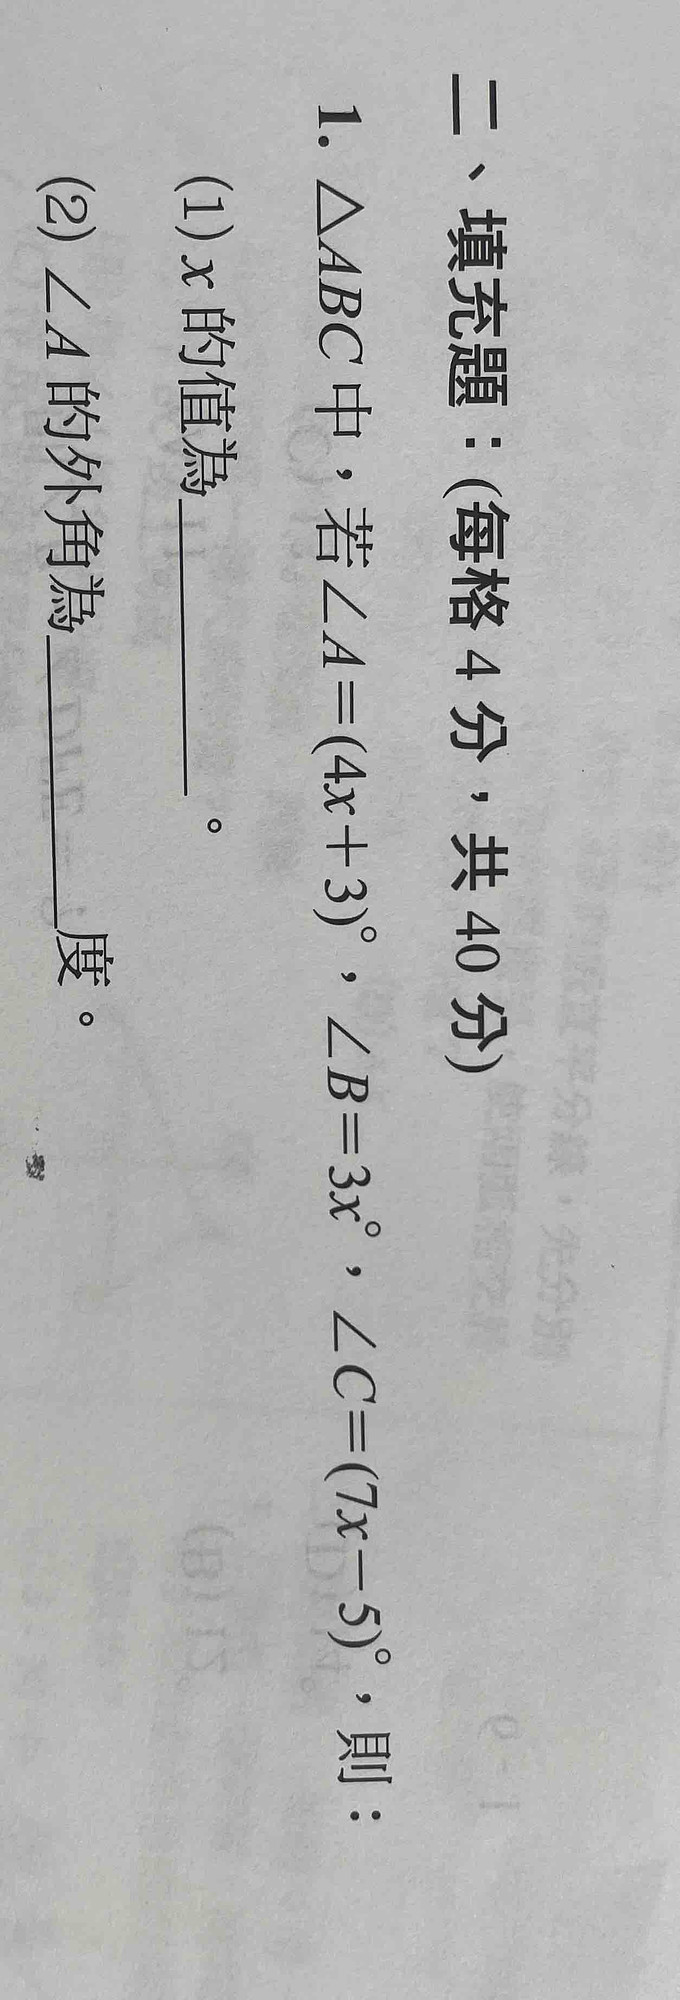 二、填充題：(每格 4 分，共 40 分)
1. △ABC 中，若∠A=(4x+3)°，∠B=3x°，∠C=(7x−5)°，則：
(1) x 的值為__________。
(2) ∠A 的外角為__________度。